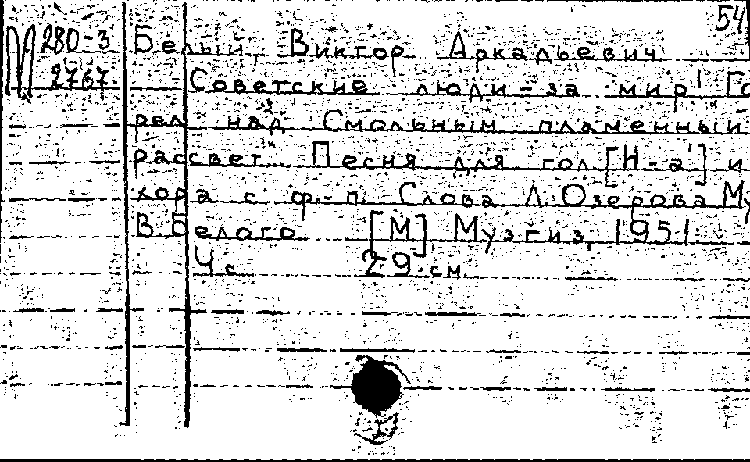 54
М 280-3 Белый, Виктор Аркадьевич
2767. Советские люди - за мир! Го
рел над Смольным пламенный
рассвет. Песня для гол. [Н-а'] и
хора с ф.-п. Слова Л. Озерова Му
В. Белого [М] Музгиз, 1951.
4 с 29 см.